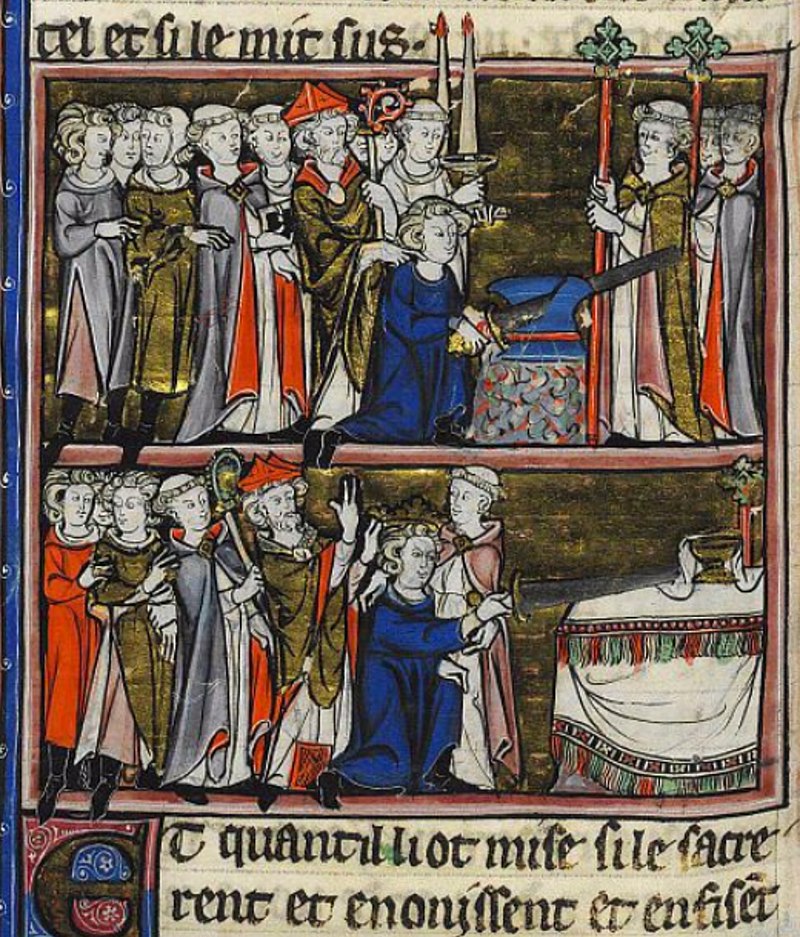 tel et si le mit sus.
ET quant il li ot mise si le sacre
rent et enoinssent et en fisēt